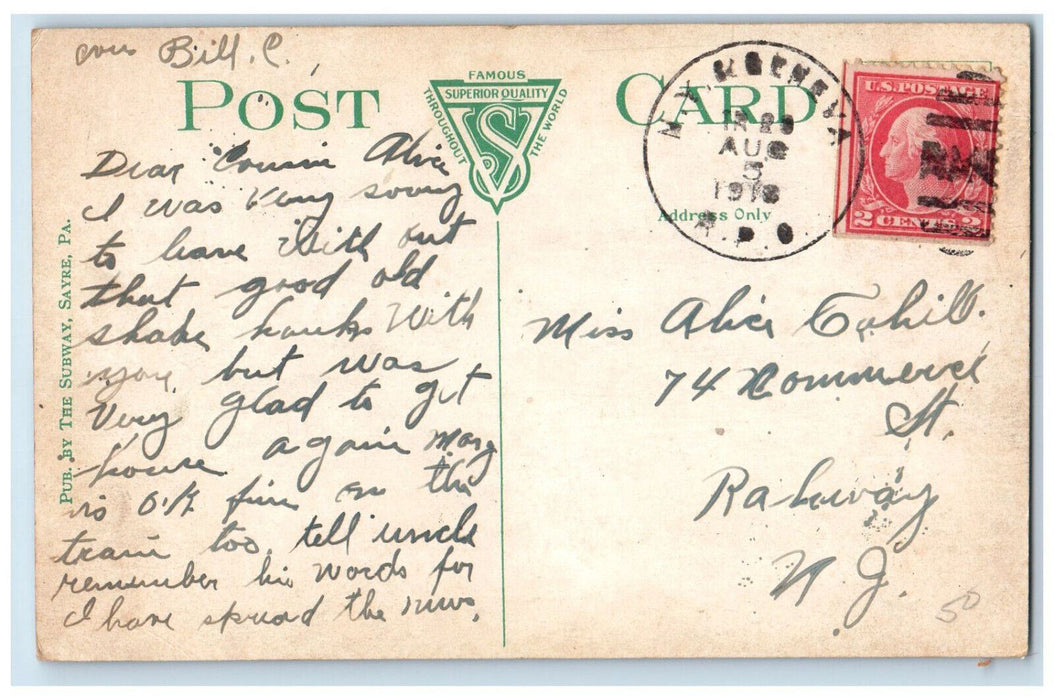 Bill. C.
POST CARD
FAMOUS
SUPERIOR QUALITY
THROUGHOUT THE WORLD
VS
Address Only
PUB. BY THE SUBWAY, SAYRE, PA.
N.Y. & GENEVA
AUG
5
1918
R.P.O.
U.S. POSTAGE
2 CENTS 2
Dear Cousin Alice
I was very sorry
to leave with out
that good old
shake hanks with
you, but was
very glad to get
house again Marg
is O.K. fine on the
train too. tell uncle
remember his words for
I have spread the news.
Miss Alice Cahill.
74 Commerce
St.
Rahway
N J.
50